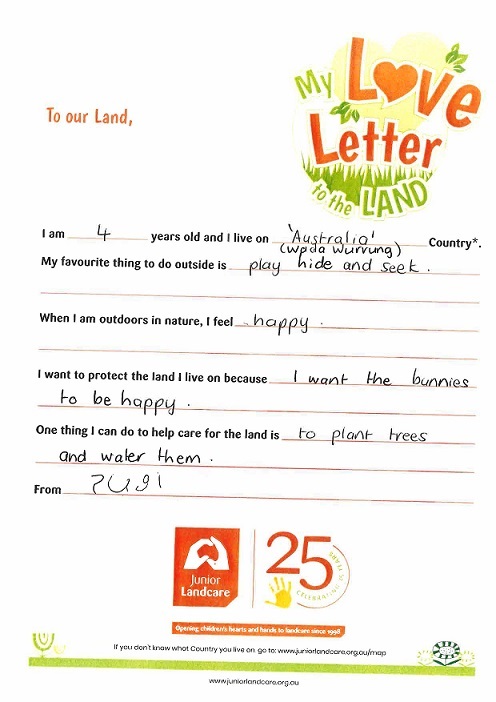 My Love
Letter
to the LAND
To our Land,
I am 4 years old and I live on 'Australia' Country*.
(wada wurrung)
My favourite thing to do outside is play hide and seek.
When I am outdoors in nature, I feel happy.
I want to protect the land I live on because I want the bunnies
to be happy.
One thing I can do to help care for the land is to plant trees
and water them.
From
Junior
Landcare
25
CELEBRATING 25 YEARS
Opening children's hearts and hands to landcare since 1998
If you don't know what Country you live on go to: www.juniorlandcare.org.au/map
www.juniorlandcare.org.au